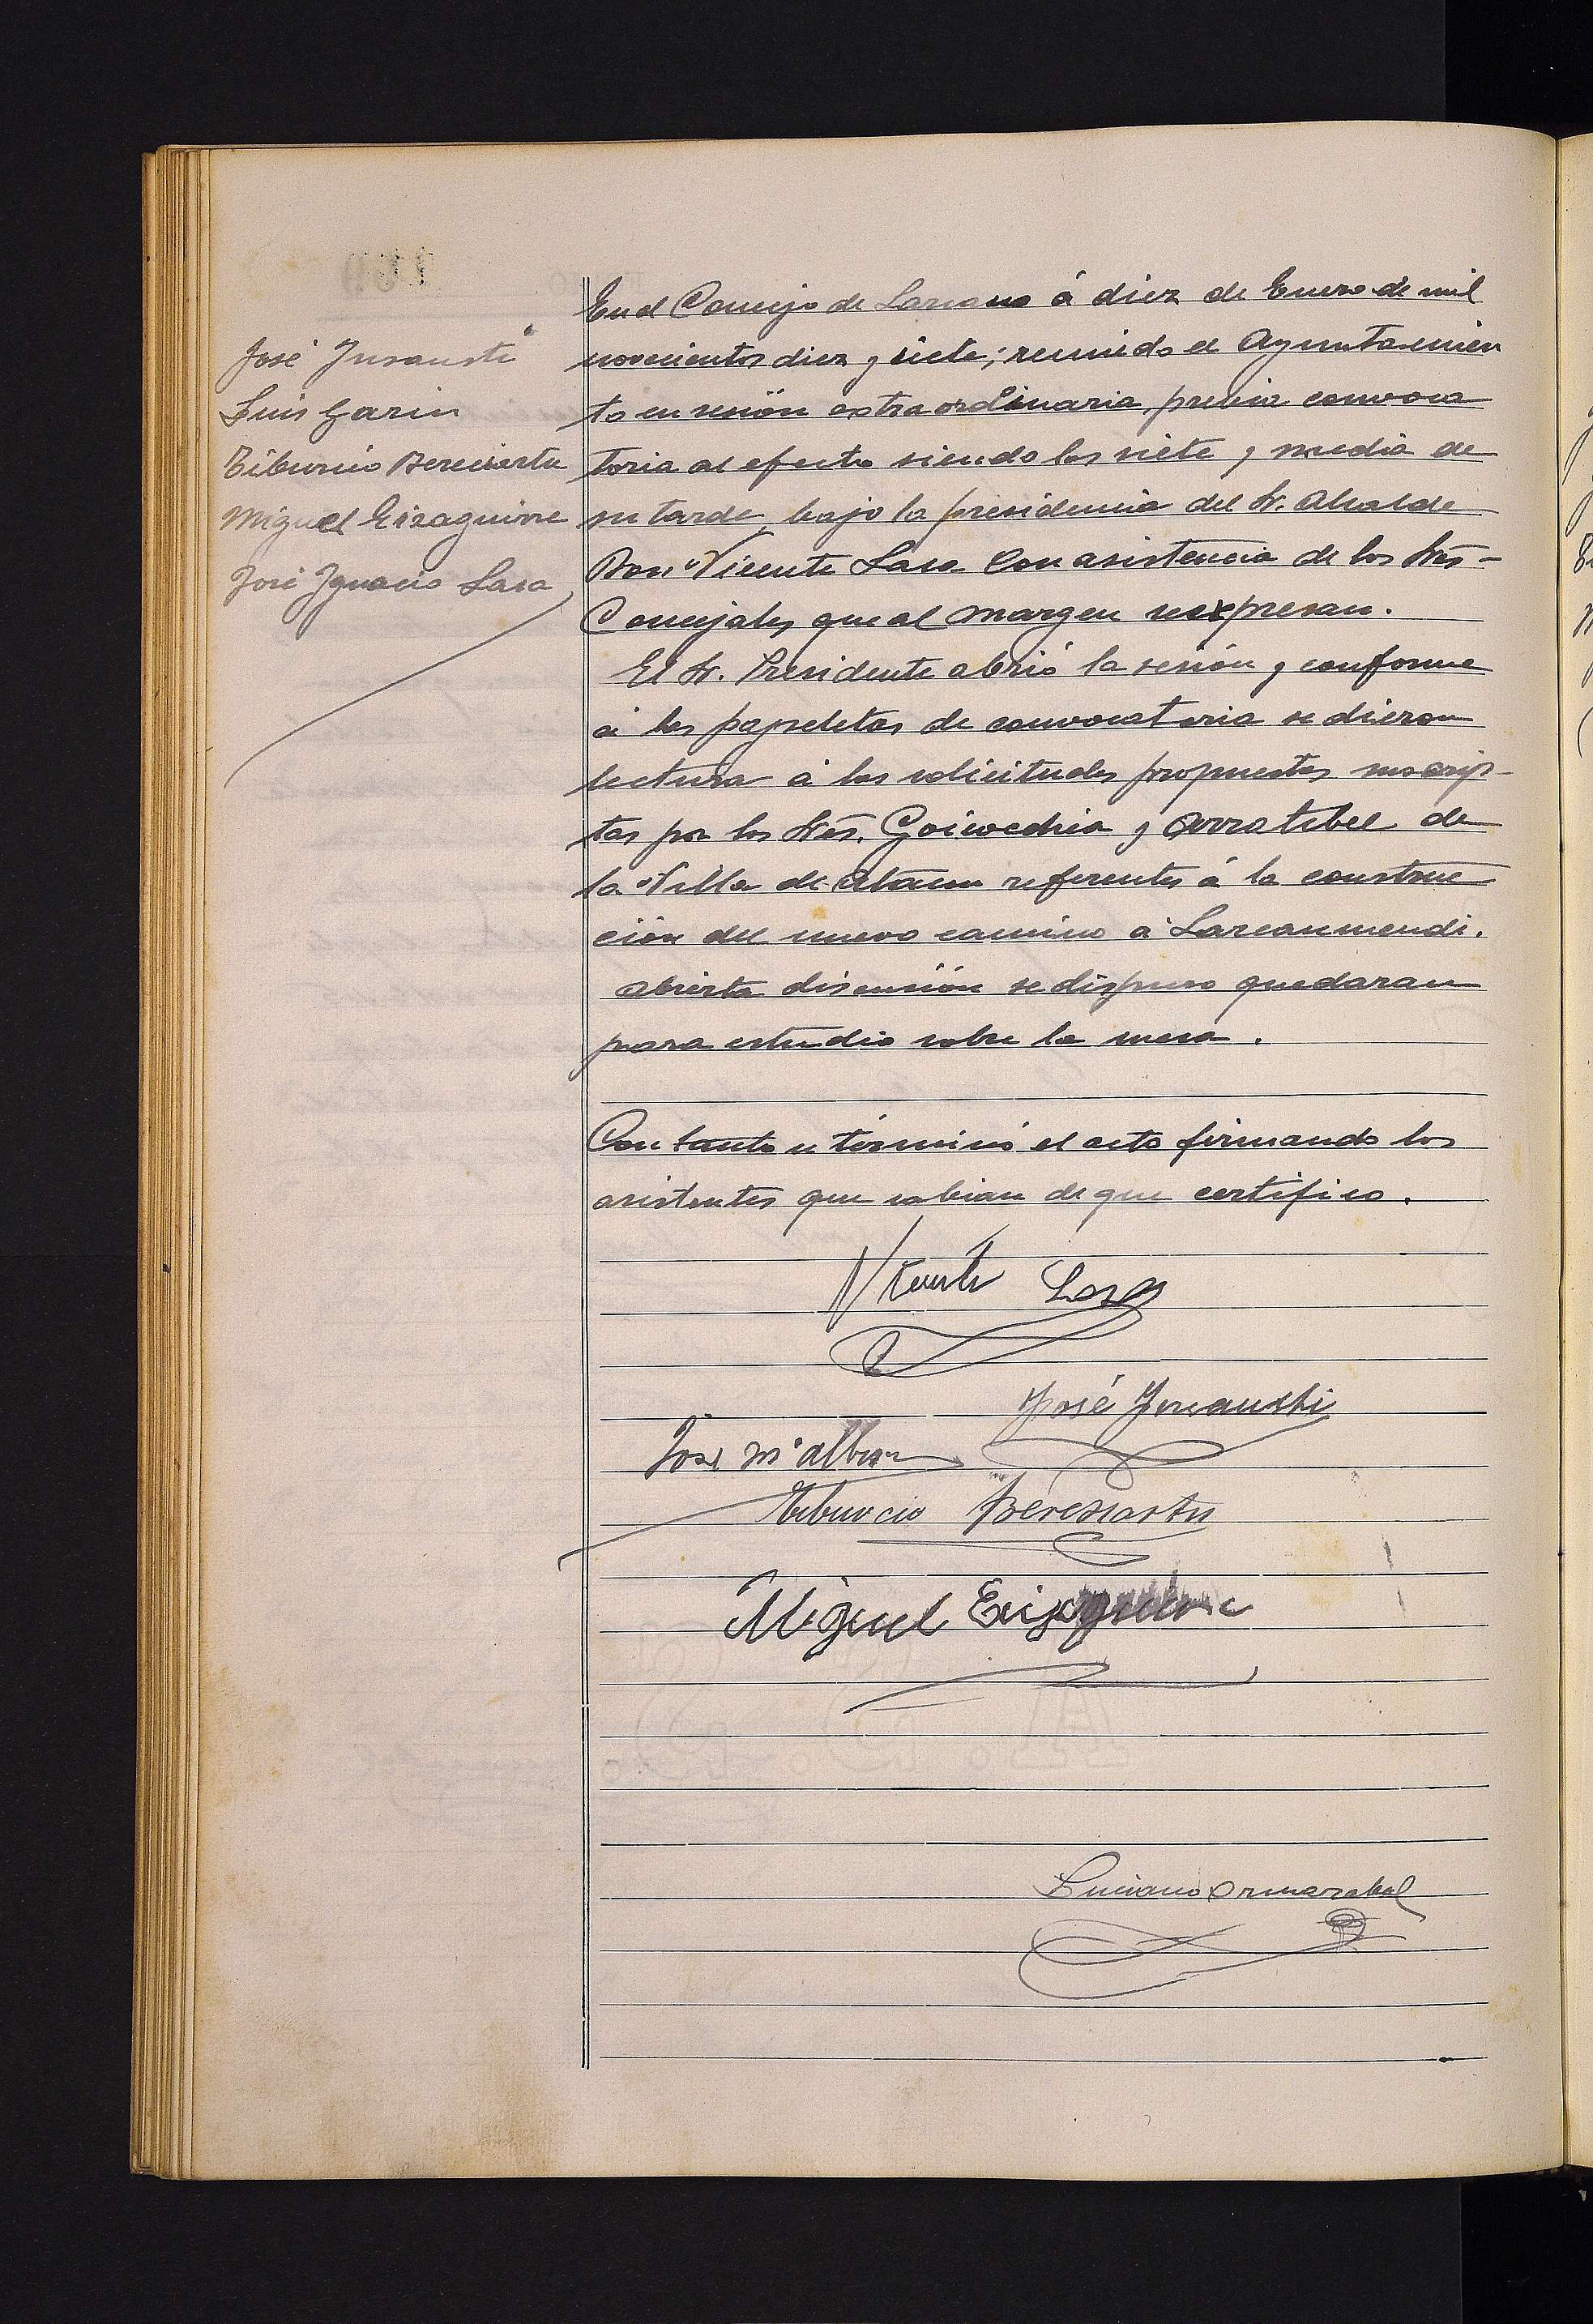 José Insausti
Luis Garin
Tiburcio Bereciartu
Miguel Eizaguirre
José Ignacio Lasa
En el Concejo de Lazcano á diez de Enero de mil
novecientos diez y siete; reunido el Ayuntamien
to en sesión extraordinaria, prebia convoca
toria al efecto siendo las siete y media de
su tarde, bajo la presidencia del Sr. Alcalde
Don Vicente Lasa con asistencia de los Sres-
Concejales que al margen se expresan.
El Sr. Presidente abrió la sesión y conforme
á las papeletas de convocatoria se dieron
lectura á las solicitudes propuestas suscrip-
tas por los Sres. Goicoechea y Arratibel de
la Villa de Ataun referentes á la construc
ción del nuevo camino á Lazcanmendi.
Abierta discusión se dispuso quedaran
para estudio sobre la mesa.
Con tanto se términó el acto firmando los
asistentes que sabian de que certifico.
Vicente Lasa
José Insausti
José Mª
Tiburcio Bereciartu
Miguel Eizaguirre
Luciano Ormazabal